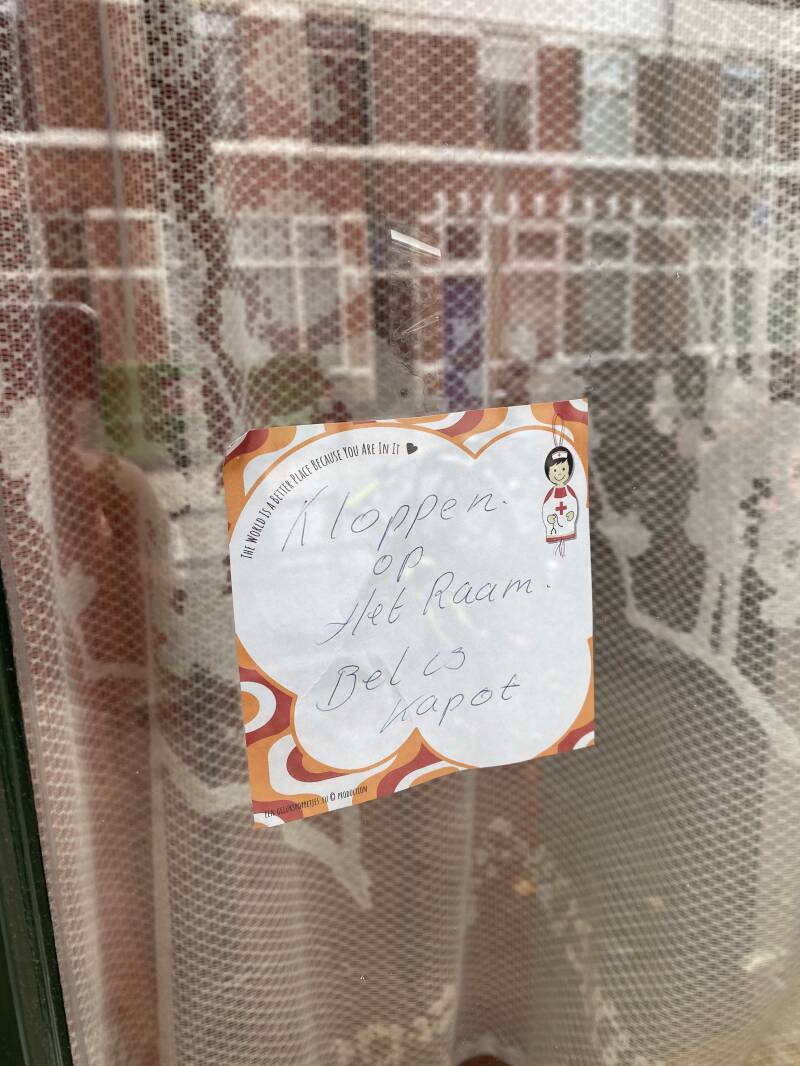 THE WORLD IS A BETTER PLACE BECAUSE YOU ARE IN IT
Kloppen.
op
Het Raam.
Bel is
kapot
EEN GELUKSPOPPETJES.EU © PRODUCTION